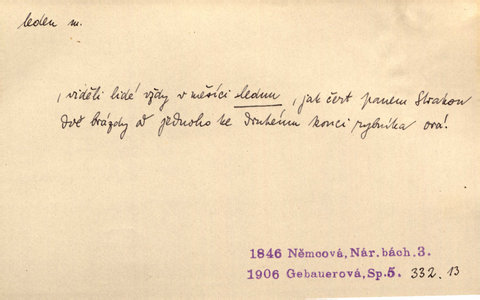 leden m.
, viděli lidé vždy v měsíci lednu, jak čert panem Strakou
dvě brázdy od jednoho ke druhému konci rybníka orá!
1846 Němcová, Nár. bách. 3.
1906 Gebauerová, Sp. 5. 332.13